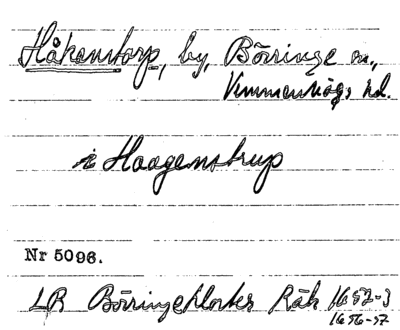 Håkanstorp, by, Börringe sn.,
Vemmenhögs hd.
i Haagenstrup
Nr 5096.
LR Börringeklosters Räk 1652-3
1656-57